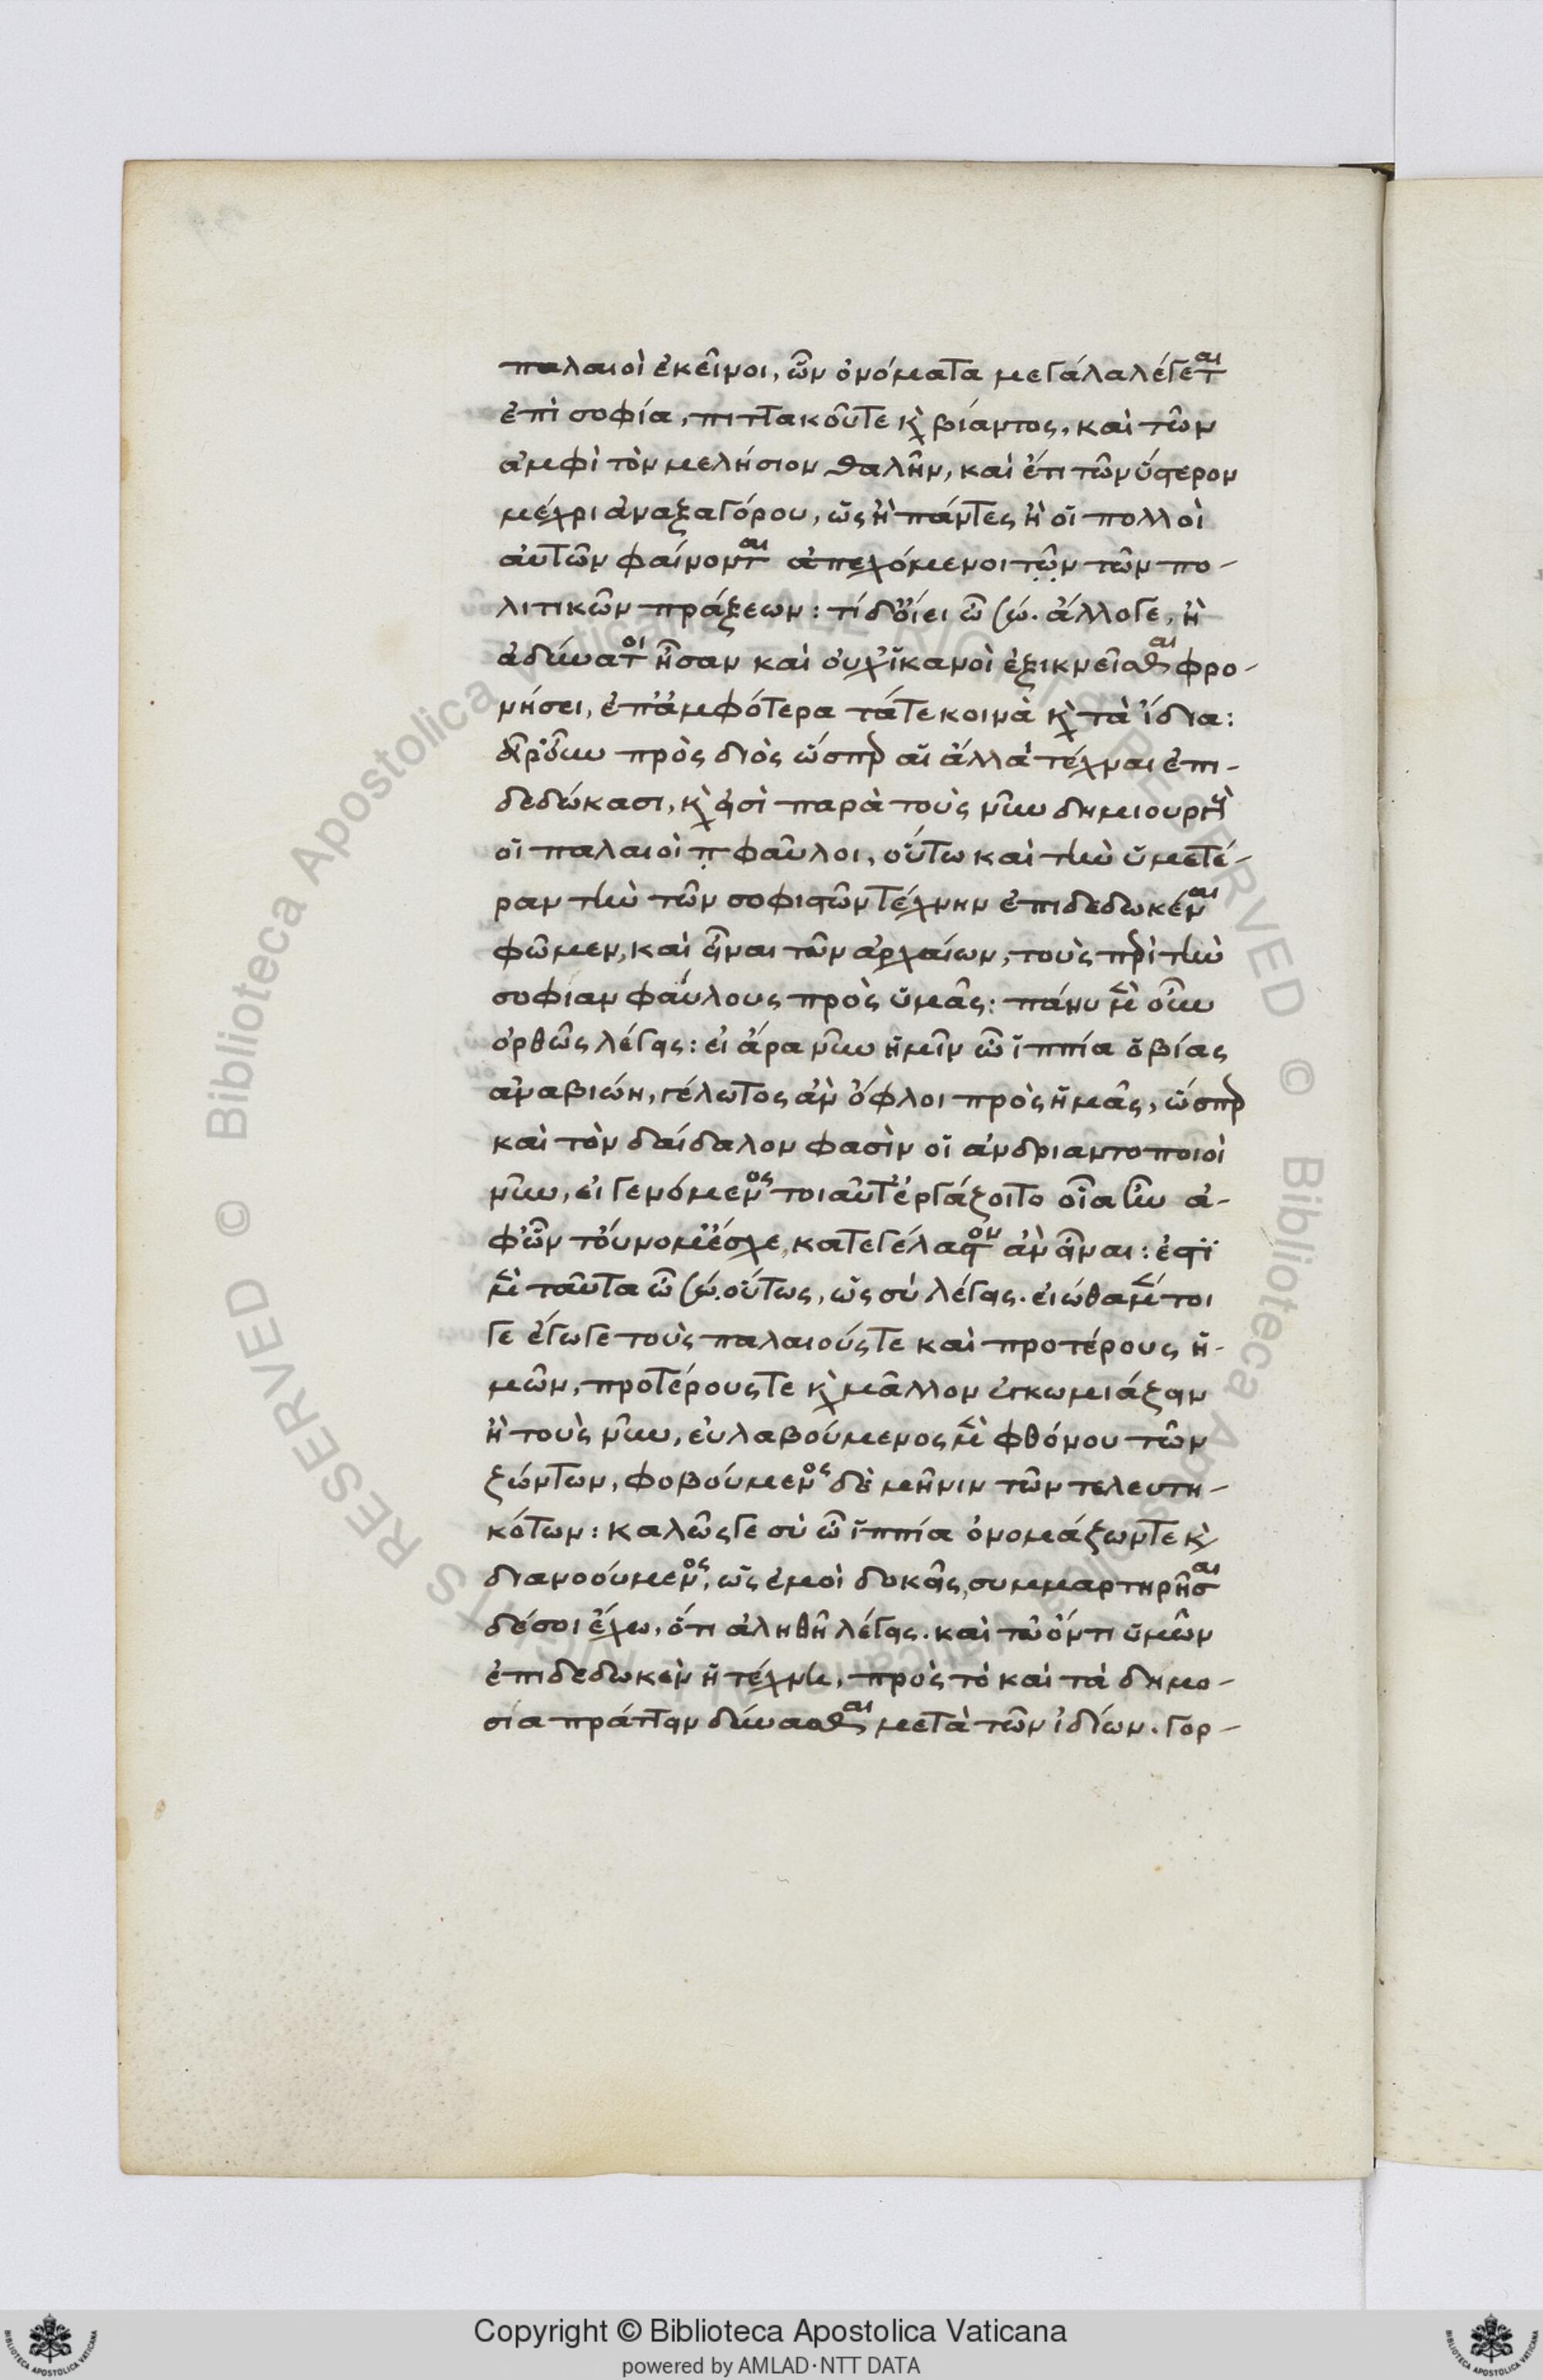 παλαιοὶ ἐκεῖνοι, ὧν ὀνόματα μεγάλα λέγεται
ἐπὶ σοφία, πιττακοῦτε κ̀ βίαντος, καὶ τῶν
ἀμφὶ τὸν μελήσιον θαλῆν, καὶ ἔτι τῶν ὕστερον
μέχρι ἀναξαγόρου, ὡς ἢ πάντες ἢ οἱ πολλοὶ
αὐτῶν φαίνονται ἀπεχόμενοι τῶν τῶν πο-
λιτικῶν πράξεων: τί δ' οἴει ὦ σώ. ἄλλο γε, ἢ
ἀδύνατοι ἦσαν καὶ οὐχ ἱκανοὶ ἐξικνεῖσθαι φρο-
νήσει, ἐπ' ἀμφότερα τά τε κοινὰ κ̀ τὰ ἴδια:
πρὸς διὸς ὥσπερ αἱ ἄλλαι τέχναι ἐπι-
δεδώκασι, κ̀ εἰσὶ παρὰ τοὺς νῦν δημιουργοὺς
οἱ παλαιοὶ π φαῦλοι, οὕτω καὶ τὴν ὑμετέ-
ραν τὴν τῶν σοφιστῶν τέχνην ἐπιδεδωκέναι
φῶμεν, καὶ εἶναι τῶν ἀρχαίων, τοὺς περὶ τὴν
σοφίαν φαύλους πρὸς ὑμᾶς: πάνυ μὲν οὖν
ὀρθῶς λέγεις: εἰ ἄρα νῦν ἡμῖν ὦ ἱππία ὁ βίας
ἀναβιώη, γέλωτος ἂν ὄφλοι πρὸς ἡμᾶς, ὥσπερ
καὶ τὸν δαίδαλον φασὶν οἱ ἀνδριαντοποιοὶ
νῦν, εἰ γενόμενος τοιαῦτ' ἐργάζοιτο οἷα ἦν ἀ-
φ' ὧν τοὔνομ' ἔσχε, καταγέλαστον ἂν εἶναι: ἔστι
μὲν ταῦτα ὦ σώ. οὕτως, ὡς σὺ λέγεις. εἰώθα μέν τοι
γε ἔγωγε τοὺς παλαιούς τε καὶ προτέρους ἡ-
μῶν, προτέρους τε κ̀ μᾶλλον ἐγκωμιάζειν
ἢ τοὺς νῦν, εὐλαβούμενος μὲν φθόνον τῶν
ζώντων, φοβούμενος δὲ μῆνιν τῶν τελευτη-
κότων: καλῶς γε σὺ ὦ ἱππία ὀνομάζων τε κ̀
διανοούμενος, ὡς ἐμοὶ δοκεῖς, συμμαρτηρῆσαι
δέ σοι ἔχω, ὅτι ἀληθῆ λέγεις. καὶ τῶ ὄντι ὑμῶν
ἐπιδεδωκεν ἡ τέχνη, πρὸς τὸ καὶ τὰ δημο-
σία πράττειν δύνασθαι μετὰ τῶν ἰδίων. γορ-
Copyright © Biblioteca Apostolica Vaticana
powered by AMLAD·NTT DATA